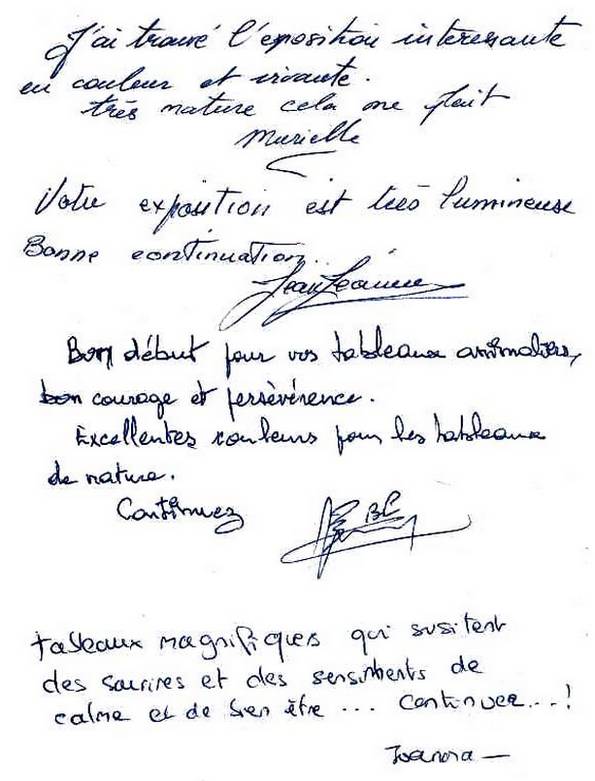 J'ai trouvé l'exposition interessante
en couleur et vivante.
très nature cela me plait
Murielle
Votre exposition est très lumineuse
Bonne continuation..
Bon début pour vos tableaux animaliers,
bon courage et persèvérence.
Excellentes couleurs pour les tableaux
de nature.
Continuez
BC
tableaux magnifiques qui susitent
des sourires et des sensiments de
calme et de bien être ... continuez...!